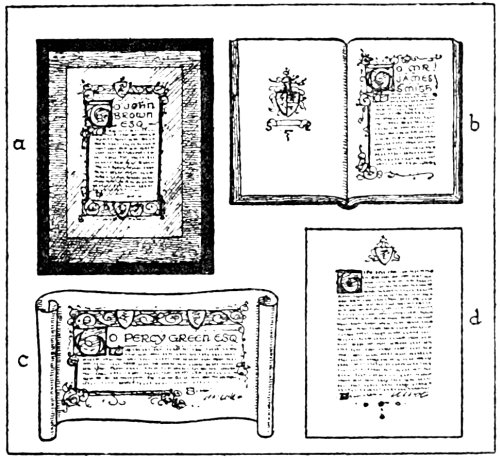 a
TO JOHN
BROWN
ESQ
b
TO MR
JAMES
SMITH
c
TO PERCY GREEN ESQ
d